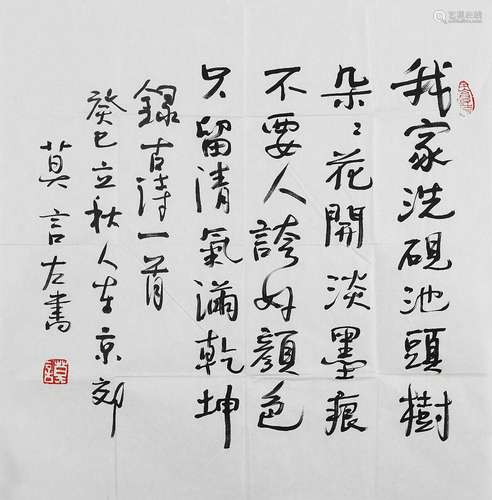 我家洗硯池頭樹
朵〻花開淡墨痕
不要人誇好顏色
只留清氣滿乾坤
錄古詩一首
癸巳立秋人在京郊
莫言左書
莫言